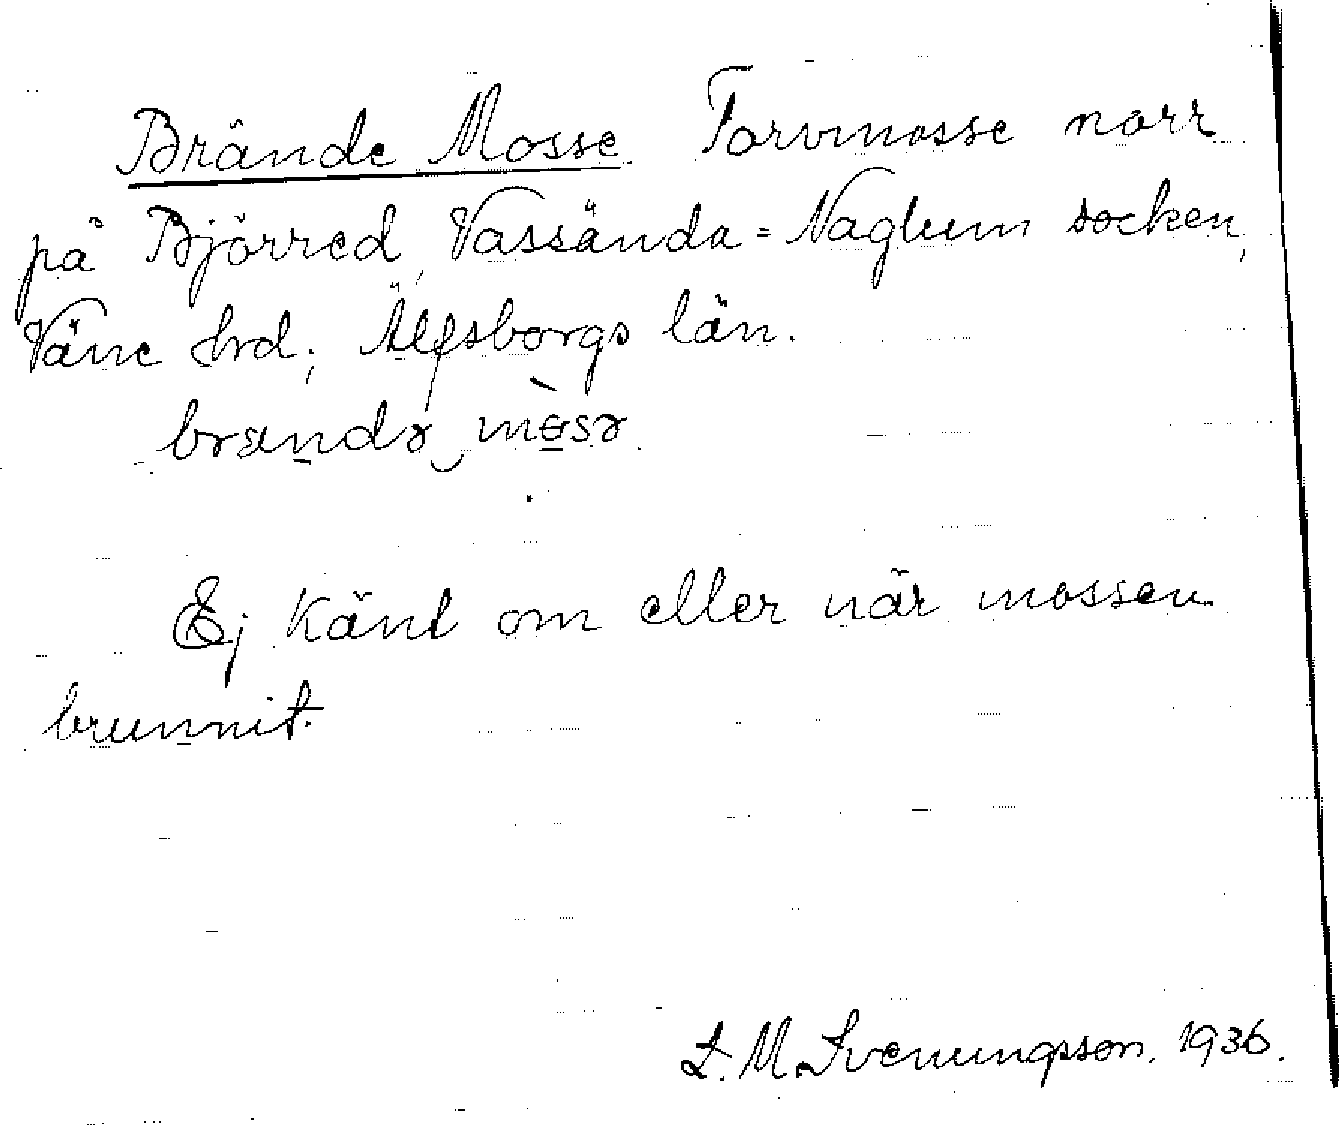 Brände Mosse. Torvmosse norr
på Björred, Vassända=Naglum socken,
Väne hrd; Älfsborgs län.
brændə mòsə
Ej känt om eller när mossen
brunnit.
L. M. Svenungsson. 1936.